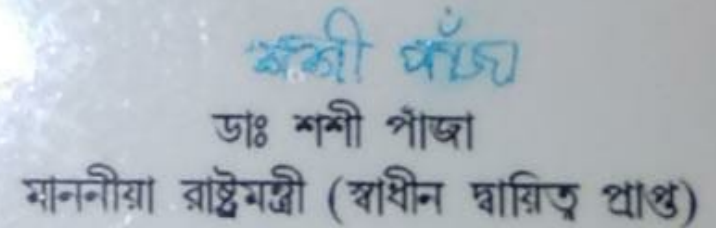 শশী পাঁজা
ডাঃ শশী পাঁজা
মাননীয়া রাষ্ট্রমন্ত্রী (স্বাধীন দ্বায়িত্ব প্রাপ্ত)